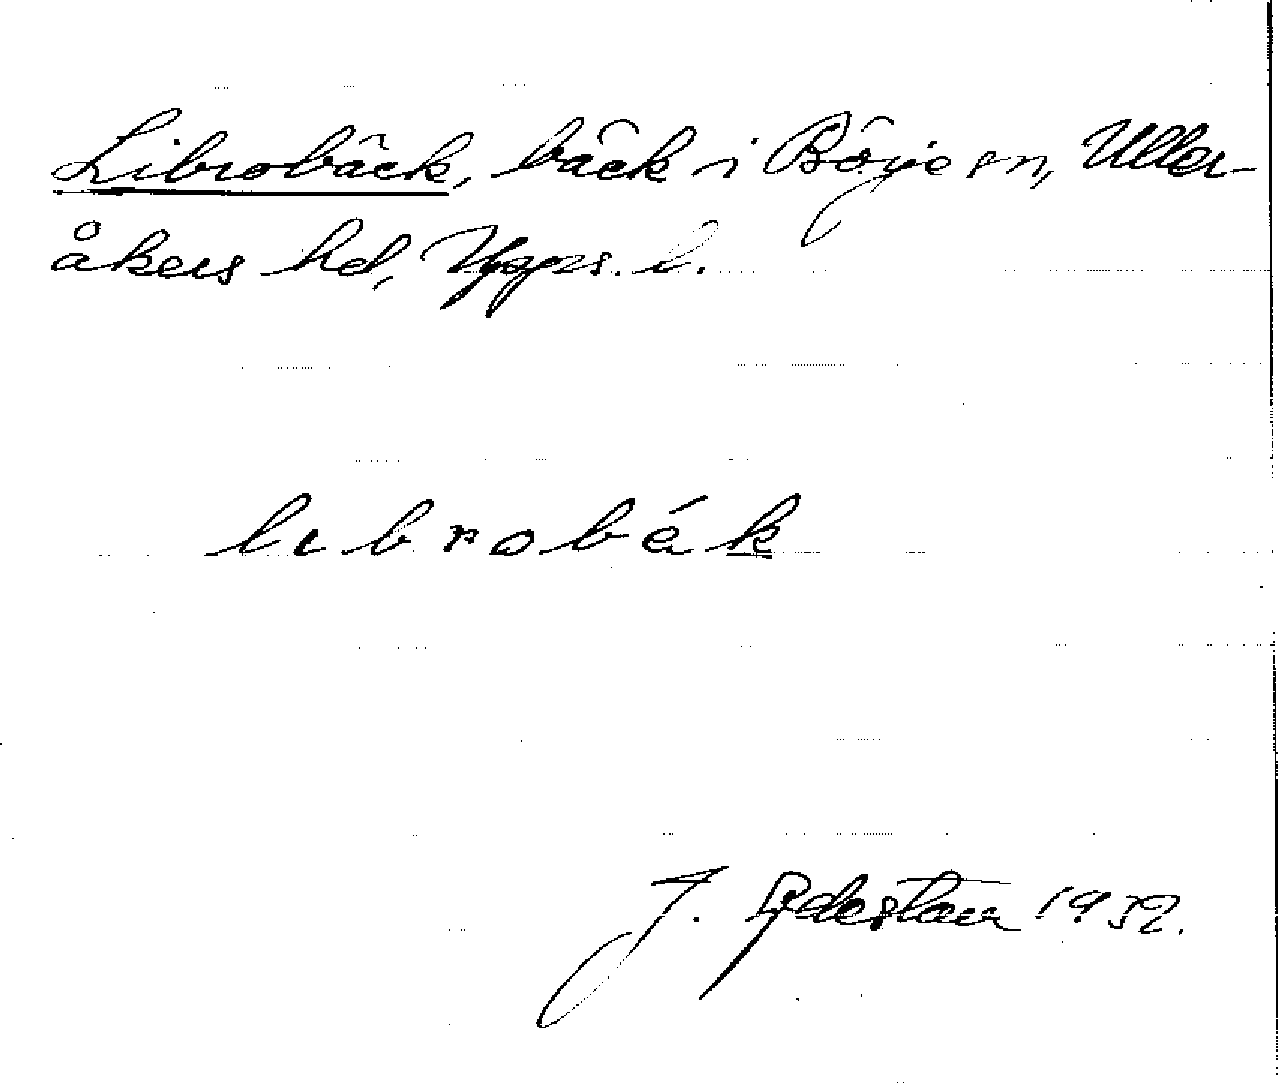 Librobäck, bäck i Börje sn, Uller-
åkers hd, Upps. l.
librobák
J. Lydestam 1932.